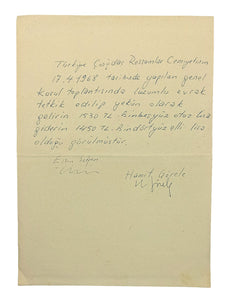 Türkiye Çağdaş Ressamlar Cemiyetinin
17.4.1968 tarihinde yapılan genel
kurul toplantısında lüzumlu evrak
tetkik edilip yekün olarak
gelirin 1530 TL. Binbeşyüz otuz lira
giderin 1450 TL. Bindörtyüz elli lira
olduğu görülmüştür.
Hamit Görele